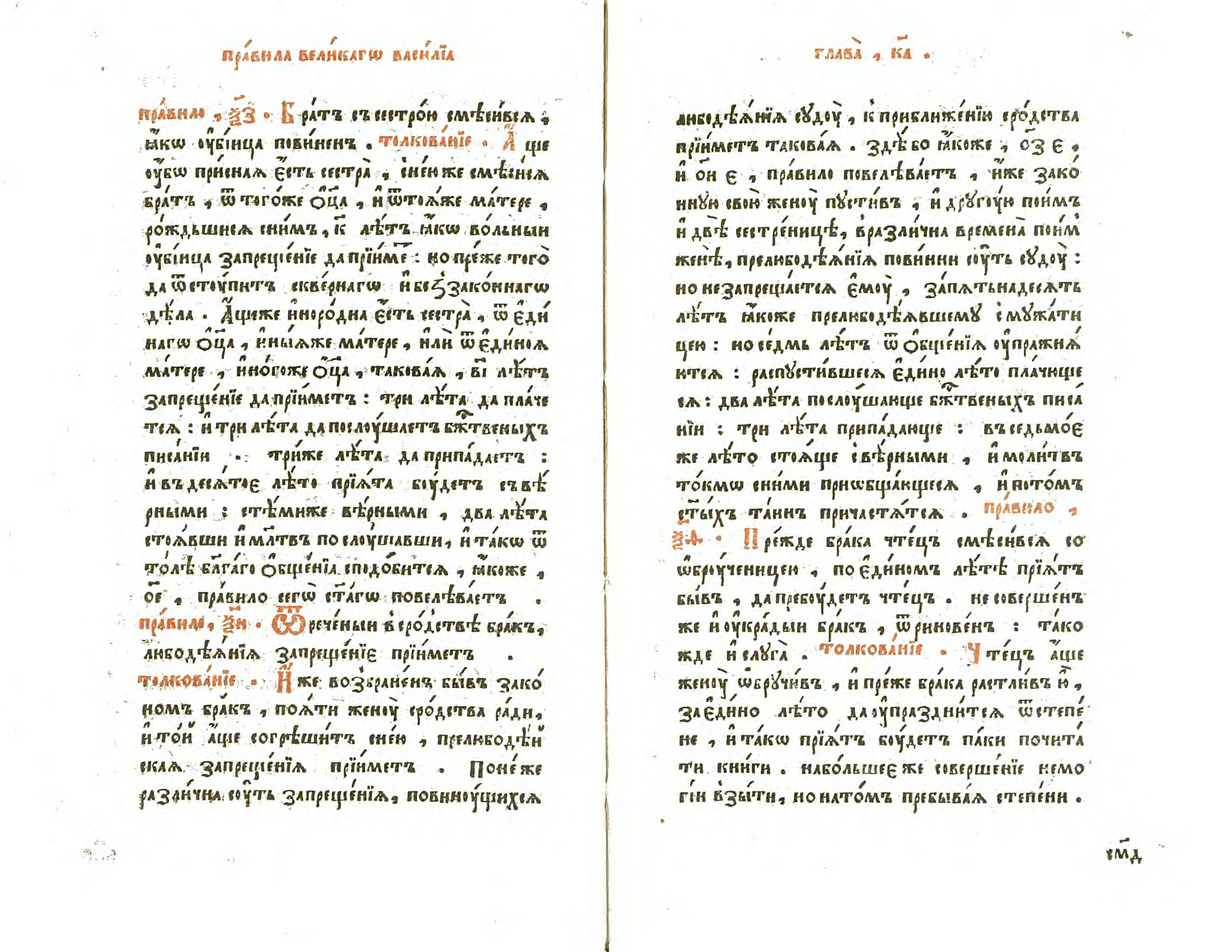 пра́вила вели́кагѡ васи́лїа
пра́вило , ѯ҃з . Бра́тъ съ сестро́ю смѣси́всѧ ;
ꙗ́кѡ ᲂу҆бі́ица пови́ненъ . толкова́нїе . А҆ ще
ᲂу҆́бѡ присна́ѧ є҆́сть сестра̀ , сне́ю же смѣси́сѧ
бра́тъ , ѿ того́же ѻ҆ц҃а̀ , и҆ ѿтоѧ́же ма́тере ,
ро́ждьшиисѧ сни́мъ , к҃ лѣ́тъ ꙗ҆́кѡ во́льныи
ᲂу҆бі́ица запреще́нїе да прїи́ме : но пре́же того̀
да ѿстоу́питъ скве́рнагѡ и҆ беꙁзако́ннагѡ
дѣ́ла . А҆́щеже и҆норо́дна є҆́сть сестра̀ , ѿ є҆ди́
нагѡ ѻ҆ц҃а̀ , и҆ ины́ѧже ма́тере , и҆лѝ ѿ є҆ди́ноѧ
ма́тере , и҆ ино́гоже ѻ҆ц҃а̀ , такова́ѧ , в҃і лѣ́тъ
запреще́нїе да прїи́метъ : трѝ лѣ́та да пла́че
тсѧ : и҆ трѝ лѣ́та да послоу́шаетъ бж҃твеныхъ
писа́нїи . три́же лѣ́та да припа́даетъ :
и҆ въ десѧ́тое лѣ́то прїѧ́та боу́детъ съ вѣ́
рными : стѣ́миже вѣ́рными , два лѣ́та
стоѧ́вши и҆ мл҃твъ послоу́шавши , и҆ та́кѡ ѿ
то́лѣ бл҃га́го ѻ҆бще́нїѧ сподо́битсѧ , ꙗ҆́коже ,
о҃е , пра́вило сегѡ̀ ст҃а́гѡ повелѣва́етъ .
пра́вило , ѯ҃и . Ѿрече́ныи в сро́дствѣ бра́къ ,
любодѣѧ́нїѧ запреще́нїе прїи́метъ .
толкова́нїе . И҆́же возбране́нъ бы́въ зако́
номъ бра́къ , поѧ́ти женоу̀ сро́дства ра́ди ,
и҆ то́й а҆́ще согрѣши́тъ сне́ю , прелюбодѣ́й
скаѧ запреще́нїѧ прїи́метъ . Поне́же
разли́чна соу́ть запреще́нїѧ , повиноу́щихсѧ
глава̀ , к҃а .
любодѣѧ́нїѧ судоу̀ , к приближе́нїю сро́дства
прїи́метъ такова́ѧ . здѣ́ бо ꙗ҆́коже , о҃з е ,
и҆ о҃и е , пра́вило повелѣва́етъ , и҆́же зако́
нную свою̀ женоу̀ пусти́въ , и҆ другоу́ю пои́мъ
и҆ двѣ̀ сестре́ницѣ , в разли́чна времена̀ пои́м
женѣ̀ , прелюбодѣѧ́нїѧ пови́нни соу́ть судоу̀ :
но не запреща́етсѧ є҆моу̀ , за пѧ́тьна́десѧть
лѣ́тъ ꙗ҆́коже прелюбодѣ́ѧвшему с мужа́ти
цею : но се́дмь лѣ́тъ ѿ ѻ҆бще́нїѧ ᲂу҆пражнѧ́
ютсѧ : распусти́вшеесѧ є҆ди́но лѣ́то пла́чюще
сѧ : два лѣ́та послоу́шающе бж҃твеныхъ писа́
нїи : трѝ лѣ́та припа́дающе : въ седьмо́е
же лѣ́то стоѧ́ще с вѣ́рными , и҆ моли́твъ
то́кмѡ сни́ми приѡбща́ющесѧ , и҆ пото́мъ
ст҃ы́хъ та́инъ причастѧ́тсѧ . пра́вило ,
ѯ҃ѳ . Пре́жде бра́ка чте́цъ смѣси́всѧ со
ѡ҆броуче́ницею , по є҆ди́номъ лѣ́тѣ прїѧ́тъ
бы́въ , да пребоу́детъ чте́цъ . не соверше́нъ
же и҆ ᲂу҆кра́дыи бра́къ , ѿринове́нъ : та́ко
жде и҆ слуга̀ . толкова́нїе . Чте́цъ а҆́ще
женоу̀ ѡ҆бручи́въ , и҆ пре́же бра́ка растли́въ ю҆̀ ,
за є҆ди́но лѣ́то да ᲂу҆праздни́тсѧ ѿ степе́
не , и҆ та́кѡ прїѧ́тъ боу́детъ па́ки почита́
ти кни́ги . на бо́льшее же соверше́нїе немо
гі́и взы́ти , но на то́мъ пребыва́ѧ степе́ни .
см҃д